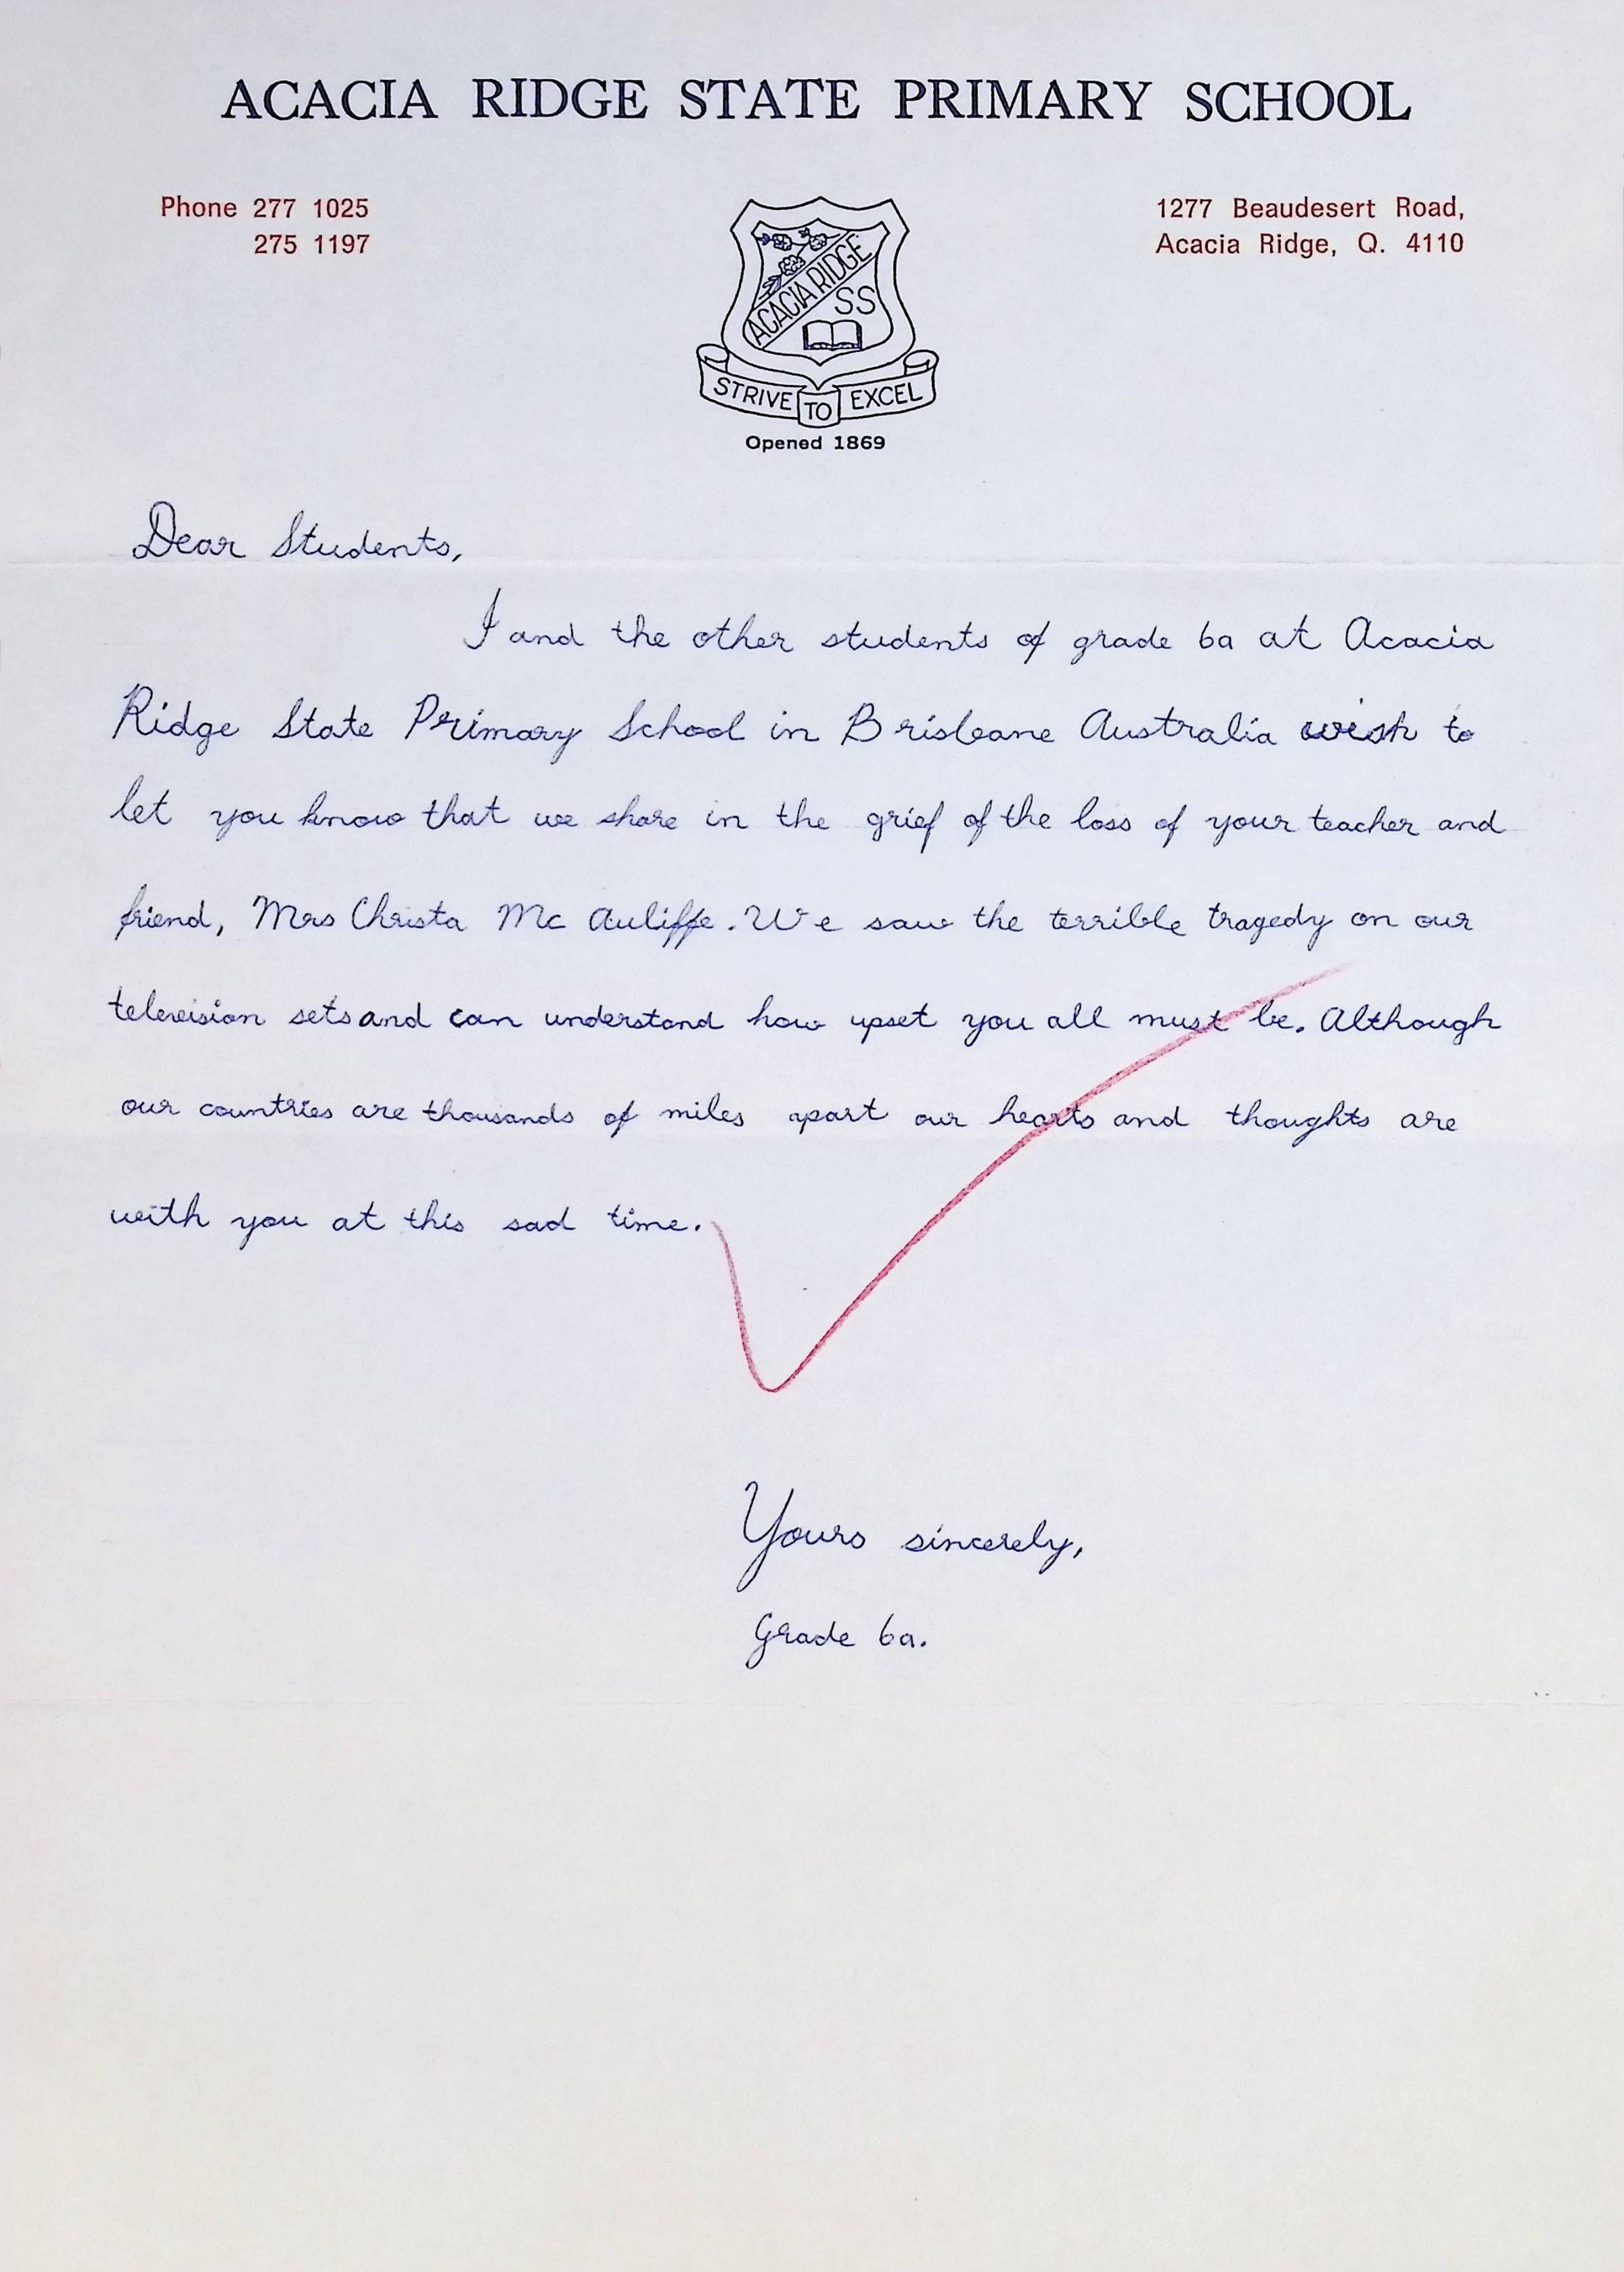 ACACIA RIDGE STATE PRIMARY SCHOOL
Phone 277 1025
275 1197
1277 Beaudesert Road,
Acacia Ridge, Q. 4110
ACACIA RIDGE
SS
STRIVE TO EXCEL
Opened 1869
Dear Students,
I and the other students of grade 6a at Acacia
Ridge State Primary School in Brisbane Australia wish to
let you know that we share in the grief of the loss of your teacher and
friend, Mrs Christa Mc Auliffe. We saw the terrible tragedy on our
television sets and can understand how upset you all must be. Although
our countries are thousands of miles apart our hearts and thoughts are
with you at this sad time.
Yours sincerely,
Grade 6a.